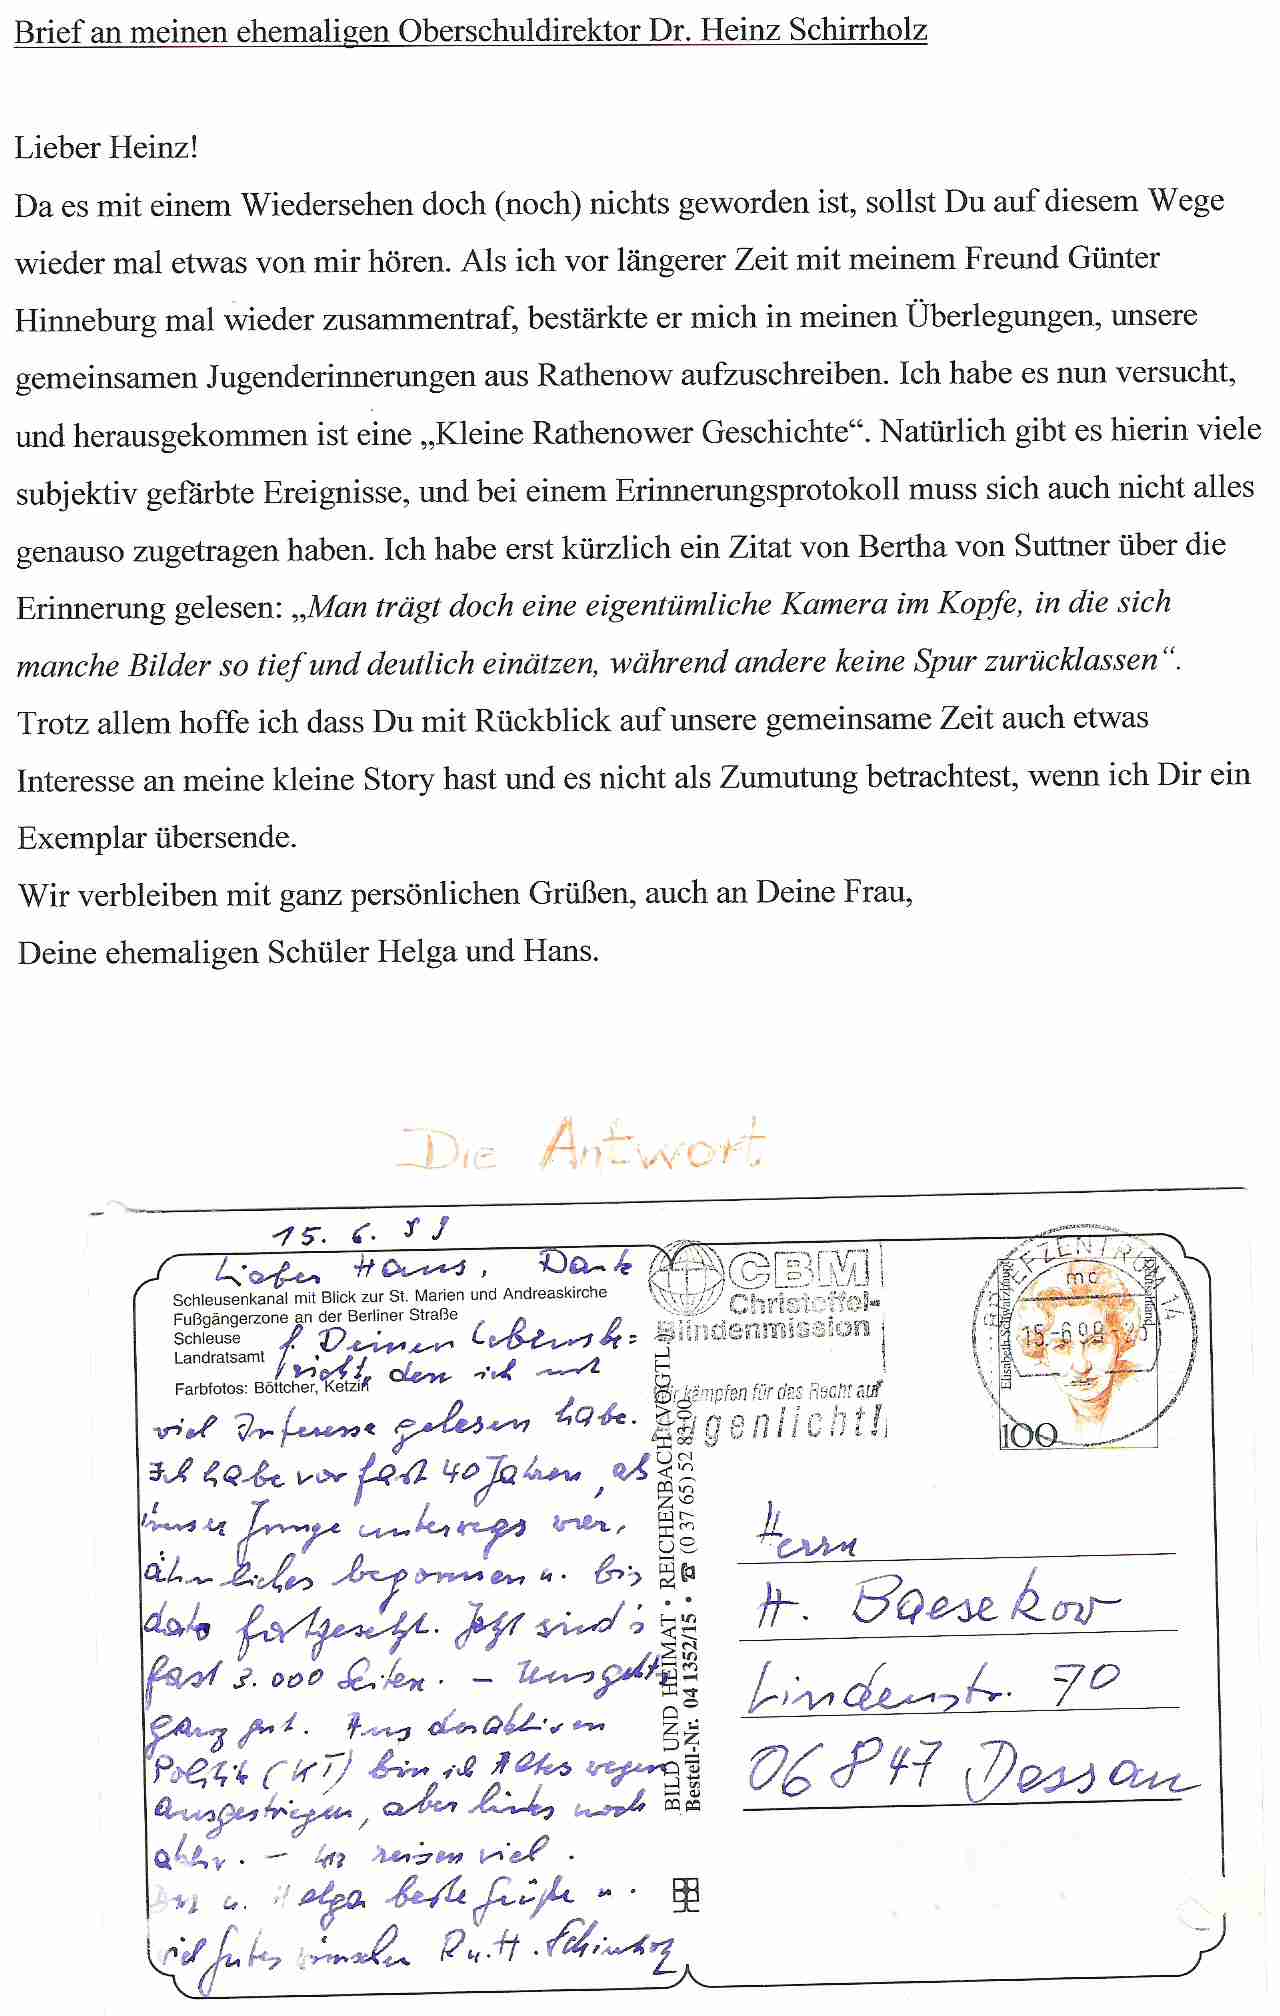 Brief an meinen ehemaligen Oberschuldirektor Dr. Heinz Schirrholz
Lieber Heinz!
Da es mit einem Wiedersehen doch (noch) nichts geworden ist, sollst Du auf diesem Wege
wieder mal etwas von mir hören. Als ich vor längerer Zeit mit meinem Freund Günter
Hinneburg mal wieder zusammentraf, bestärkte er mich in meinen Überlegungen, unsere
gemeinsamen Jugenderinnerungen aus Rathenow aufzuschreiben. Ich habe es nun versucht,
und herausgekommen ist eine „Kleine Rathenower Geschichte“. Natürlich gibt es hierin viele
subjektiv gefärbte Ereignisse, und bei einem Erinnerungsprotokoll muss sich auch nicht alles
genauso zugetragen haben. Ich habe erst kürzlich ein Zitat von Bertha von Suttner über die
Erinnerung gelesen: „Man trägt doch eine eigentümliche Kamera im Kopfe, in die sich
manche Bilder so tief und deutlich einätzen, während andere keine Spur zurücklassen“.
Trotz allem hoffe ich dass Du mit Rückblick auf unsere gemeinsame Zeit auch etwas
Interesse an meine kleine Story hast und es nicht als Zumutung betrachtest, wenn ich Dir ein
Exemplar übersende.
Wir verbleiben mit ganz persönlichen Grüßen, auch an Deine Frau,
Deine ehemaligen Schüler Helga und Hans.
Die Antwort
15. 6. 99
Lieber Hans, Dank
Schleusenkanal mit Blick zur St. Marien und Andreaskirche
Fußgängerzone an der Berliner Straße
Schleuse
Landratsamt
f. Deinen Lebensbe=
richt, den ich mit
Farbfotos: Böttcher, Ketzin
viel Interesse gelesen habe.
Ich habe vor fast 40 Jahren, als
unser Junge unterwegs war,
ähnliches begonnen u. bis
dato fortgesetzt. Jetzt sind's
fast 3.000 Seiten. – Uns geht's
ganz gut. Aus der aktiven
Politik (KT) bin ich Alters wegen
ausgestiegen, aber links noch
aktiv. – Wir reisen viel.
Dir u. Helga beste Grüße u.
viel Gutes wünschen R. u. H. Schirrholz
BILD UND HEIMAT • REICHENBACH (VOGTL
Bestell-Nr. 04 1352/15 • ☎ (0 37 65) 52 83 00
CBM
Christoffel-
Blindenmission
kämpfen für das Recht auf
Augenlicht!
BRIEFZENTRUM 14
mc
15.-6.99-
Elisabeth Schwarzhaupt
Deutschland
100
Herrn
H. Baesekow
Lindenstr. 70
06847 Dessau